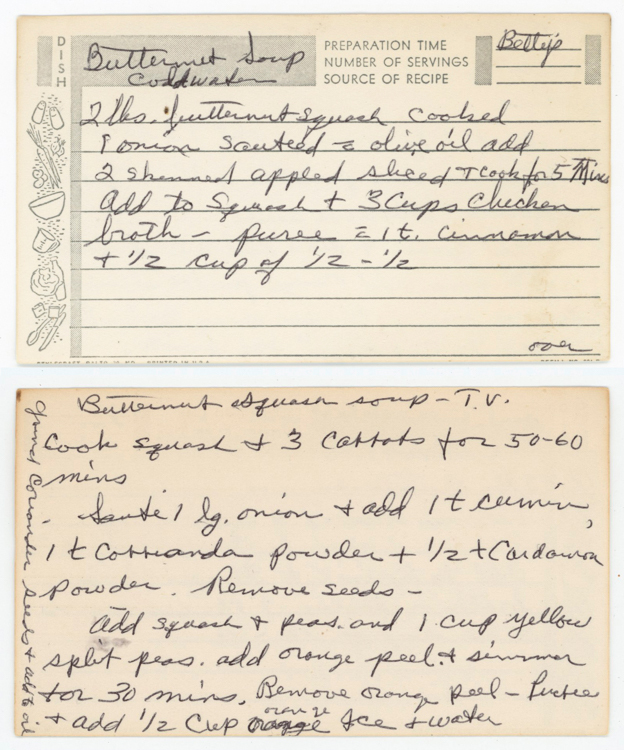 DISH
Butternut Soup
Coldwater
PREPARATION TIME
NUMBER OF SERVINGS
SOURCE OF RECIPE
Betty's
2 lbs. butternut squash cooked
1 onion sauteed = olive oil add
2 skinned apples sliced + cook for 5 Mins
Add to Squash + 3 Cups Chicken
broth – puree = 1 t. cinnamon
+ 1/2 cup of 1/2 - 1/2
over
Butternut Squash soup – T.V.
Cook squash + 3 carrots for 50-60
mins
- Saute 1 lg. onion + add 1 t cumin,
1 t Corrianda powder + 1/2 t Cardamon
powder. Remove seeds –
Add squash + peas. and 1 cup yellow
split peas. add orange peel. + simmer
for 30 mins. Remove orange peel – Puree
orange
+ add 1/2 Cup Ice + water
grind coriander seeds + add to oil